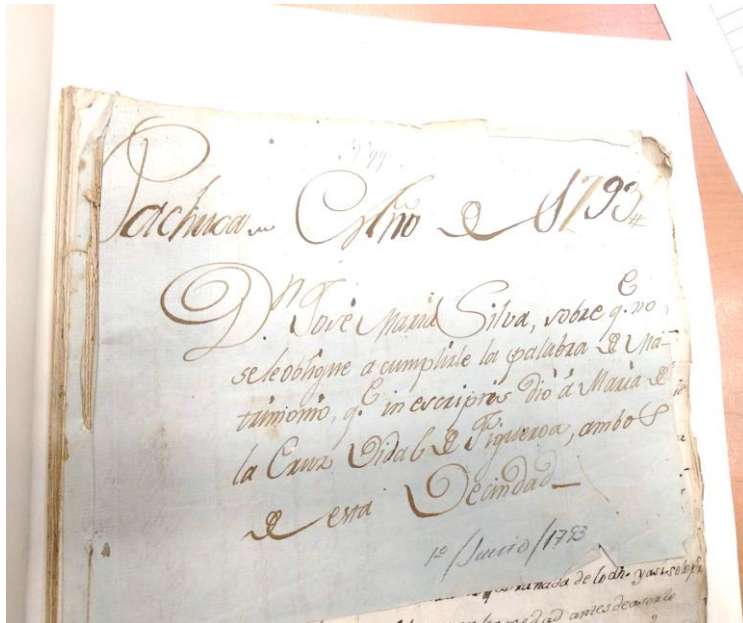 Nº 99
Pachuca Año de 1793
Dn. José Maria Silva, sobre q.e no
sele obligue a cumplirle la palabra de Ma-
trimonio, q.e in escriptis dió á Maria de
la Cruz Vidal de Figueroa, ambos
de esta Vecindad
1º/Junio/1793
nada de lo dh.
antes de